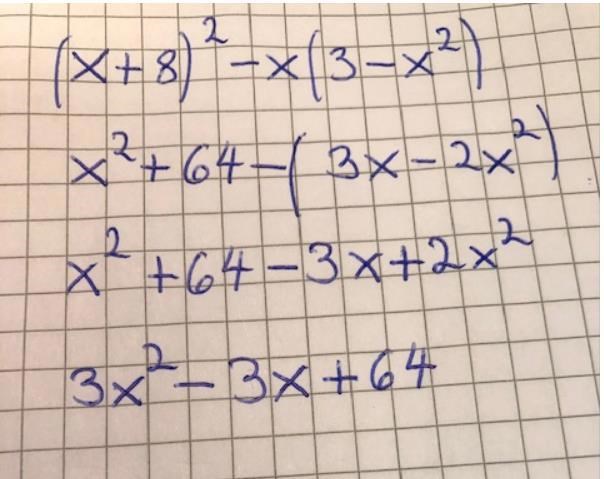 (x+8)² - x(3-x²)
x² + 64 - (3x - 2x²)
x² + 64 - 3x + 2x²
3x² - 3x + 64